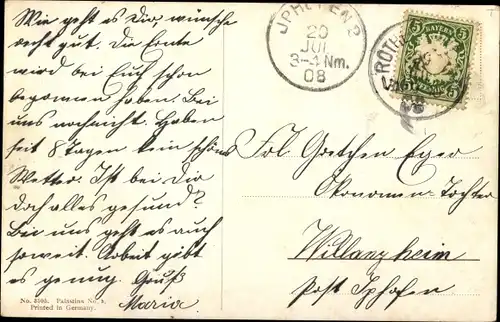 Wie geht es Dir, wünsche
recht gut. Die Ernte
wird bei Euch schon
begonnen haben. Bei
uns noch nicht. Haben
seit 8 Tagen kein schönes
Wetter. Ist bei Dir
doch alles gesund?
Bei uns geht es auch
soweit. Arbeit gibt
es genug. Gruß
Maria
No. 3105. Palästina No. 3.
Printed in Germany.
JPHOFEN 2
20
JUL
3-4 Nm.
08
5 BAYERN 5
ROTHE
Frl. Gretchen Eger
Ökonomen-Tochter
Willanzheim
Post Iphofen